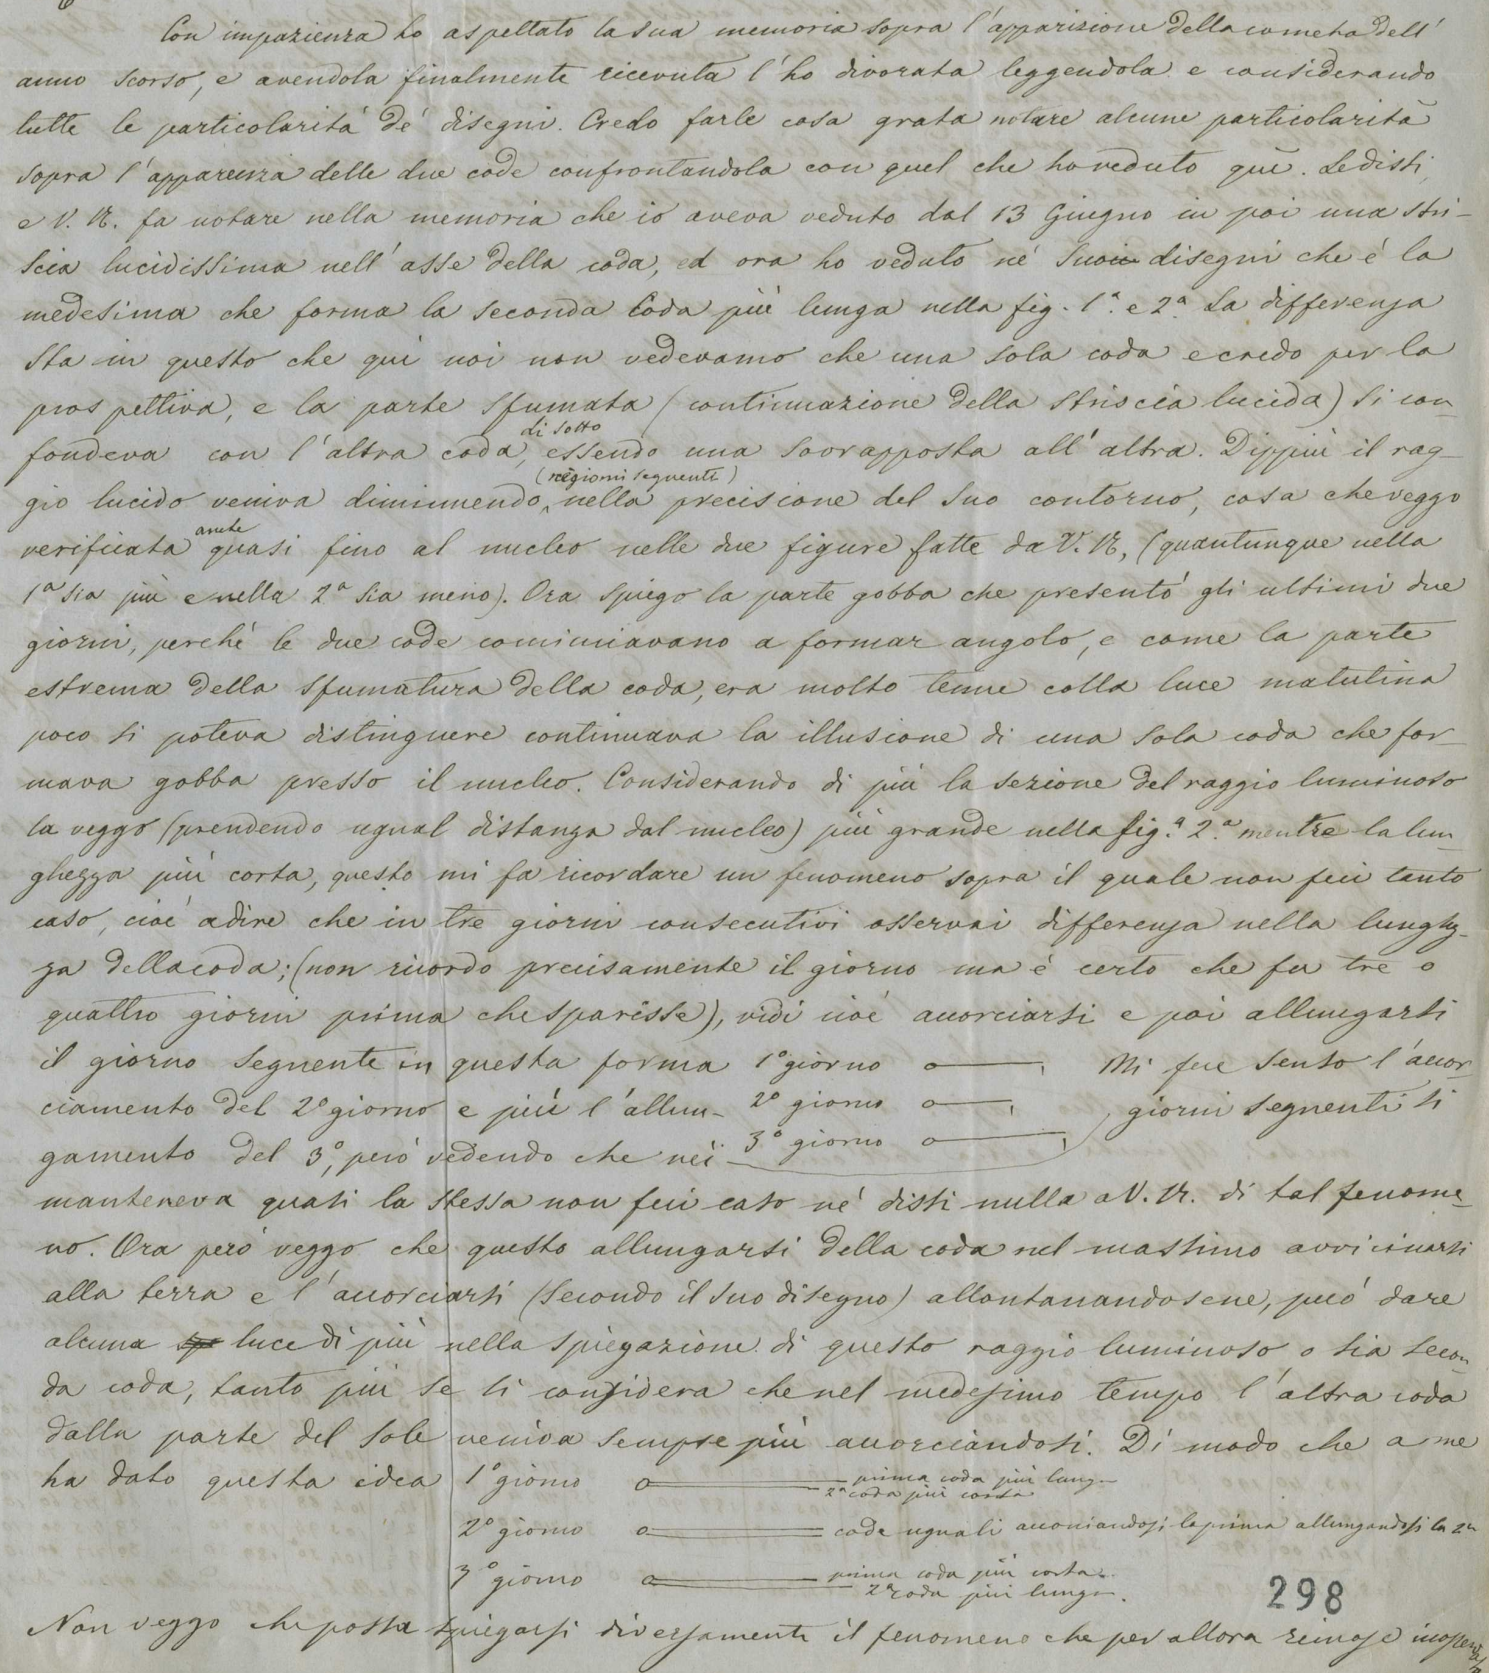 Con impazienza ho aspettato la sua memoria sopra l'apparizione della cometa dell'
anno scorso, e avendola finalmente ricevuta l'ho divorata leggendola e considerando
tutte le particolarità de' disegni. Credo farle cosa grata notare alcune particolarità
sopra l'apparenza delle due code confrontandola con quel che ho veduto quì. Le dissi,
e V. R. fa notare nella memoria che io aveva veduto dal 13 Giugno in poi una stri-
scia lucidissima nell'asse della coda, ed ora ho veduto ne' suoi disegni che é la
medesima che forma la seconda coda più lunga nella fig. 1ª e 2ª. La differenza
sta in questo che quì noi non vedevamo che una sola coda e credo per la
prospettiva, e la parte sfumata (continuazione della striscia lucida) si con-
fondeva con l'altra coda di sotto, essendo una sovrapposta all'altra. Dippiù il rag-
gio lucido veniva diminuendo (nei giorni seguenti) nella precisione del suo contorno, cosa che veggo
verificata anche quasi fino al nucleo nelle due figure fatte da V. R, (quantunque nella
1ª sia più e nella 2ª sia meno). Ora spiego la parte gobba che presentó gli ultimi due
giorni, perché le due code cominciavano a formar angolo, e come la parte
estrema della sfumatura della coda, era molto tenue colla luce matutina
poco si poteva distinguere continuava la illusione di una sola coda che for-
mava gobba presso il nucleo. Considerando di più la sezione del raggio luminoso
la veggo (prendendo ugual distanza dal nucleo) più grande nella fig.ª 2.ª mentre la lun-
ghezza più corta, questo mi fa ricordare un fenomeno sopra il quale non feci tanto
caso, cioé a dire che in tre giorni consecutivi osservai differenza nella lunghez-
za della coda; (non ricordo precisamente il giorno ma é certo che fu tre o
quattro giorni prima che sparisse), vidi cioé accorciarsi e poi allungarsi
il giorno seguente in questa forma 1º giorno Mi fece senso l'accor-
ciamento del 2º giorno e più l'allun- 2º giorno
gamento del 3º, però vedendo che nei 3º giorno giorni seguenti si
manteneva quasi la stessa non feci caso né dissi nulla a V. R. di tal fenome-
no. Ora però veggo che questo allungarsi della coda nel massimo avvicinarsi
alla terra e l'accorciarsi (secondo il suo disegno) allontanandosene, può dare
alcuna luce di più nella spiegazione di questo raggio luminoso o sia secon-
da coda, tanto più se si considera che nel medesimo tempo l'altra coda
dalla parte del sole veniva sempre più accorciandosi. Di modo che a me
ha dato questa idea 1º giorno prima coda più lunga
2ª coda più corta
2º giorno code uguali accorciandosi la prima allungandosi la 2ª
3º giorno prima coda più corta
2ª coda più lunga.
298
Non veggo che possa spiegarsi diversamente il fenomeno che per allora rimase